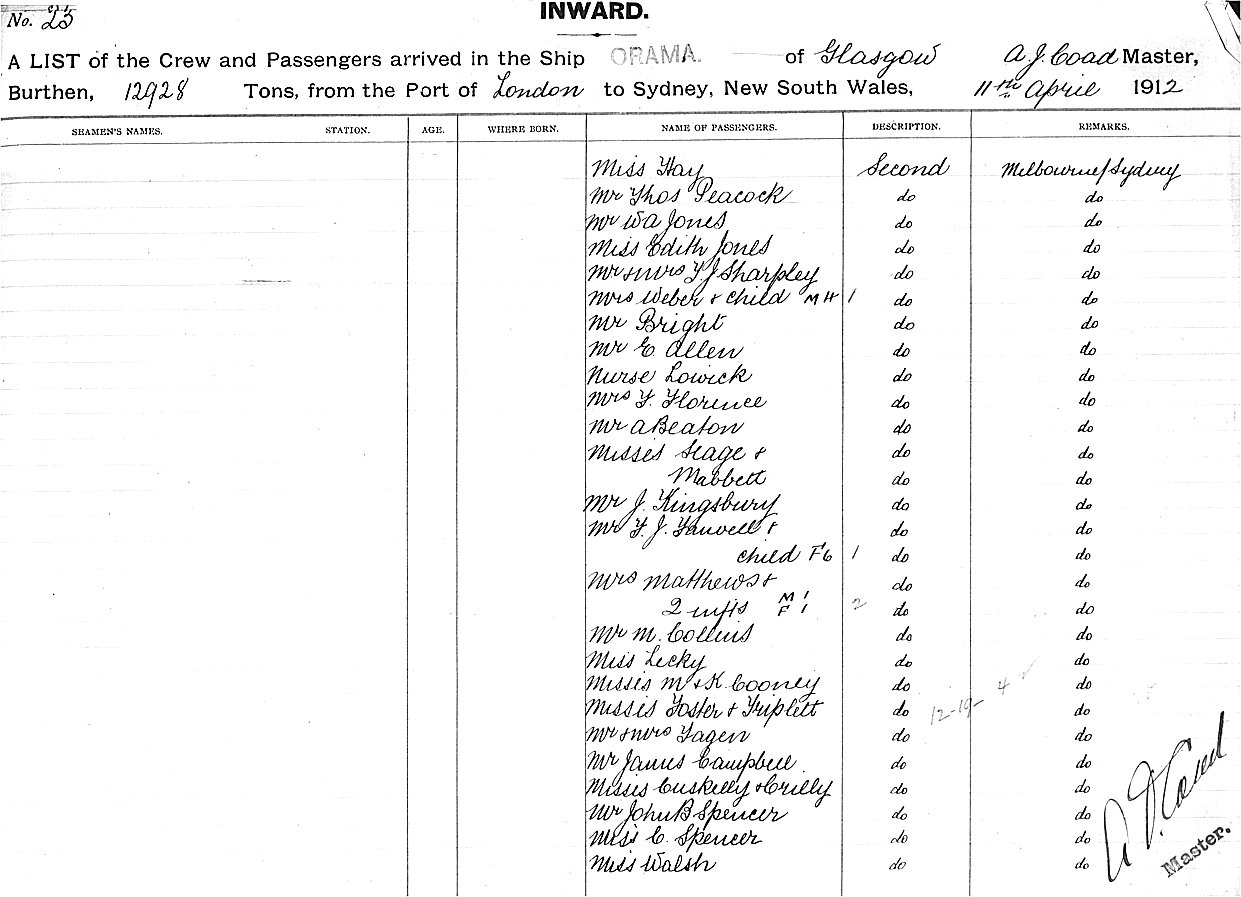 No. 23
INWARD.
A LIST of the Crew and Passengers arrived in the Ship ORAMA. of Glasgow A J. Coad Master,
Burthen, 12928 Tons, from the Port of London to Sydney, New South Wales, 11th April 1912
SEAMEN'S NAMES. STATION. AGE. WHERE BORN. NAME OF PASSENGERS. DESCRIPTION. REMARKS.
Miss Hay Second Melbourne/Sydney
Mr Thos Peacock do do
Mr W A Jones do do
Miss Edith Jones do do
Mr & Mrs T J Sharpley do do
Mrs Weber & child M 4 1 do do
Mr Bright do do
Mr E. Allen do do
Nurse Lowick do do
Mrs F. Florence do do
Mr A Beaton do do
Misses & do do
Mabbett do do
Mr J. Kingsbury do do
Mr F. J. & do do
child F 6 1 do do
Mrs Matthews & do do
2 infts M 1 F 1 2 do do
Mr M. Collins do do
Miss Lecky do do
Misses M & K. Cooney do do
Misses Foster & Triplett do do 12-19- 4
Mr & Mrs Fagen do do
Mr James Campbell do do
Misses Cuskelly & Crilly do do
Mr John B Spencer do do
Miss C. Spencer do do
Miss Walsh do do
Coad
Master.